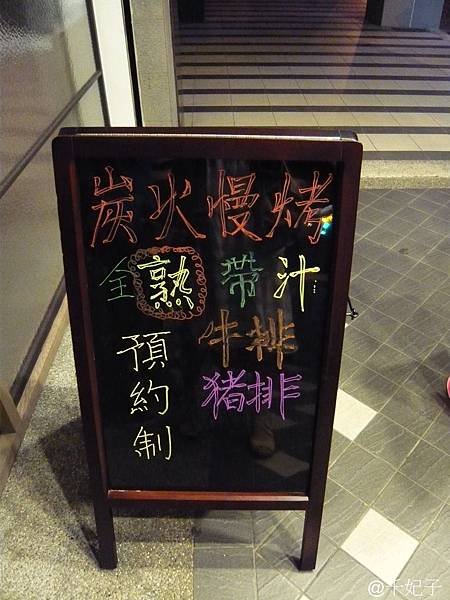 炭火慢烤
全熟帶汁
牛排
豬排
預約制
@卡妃子